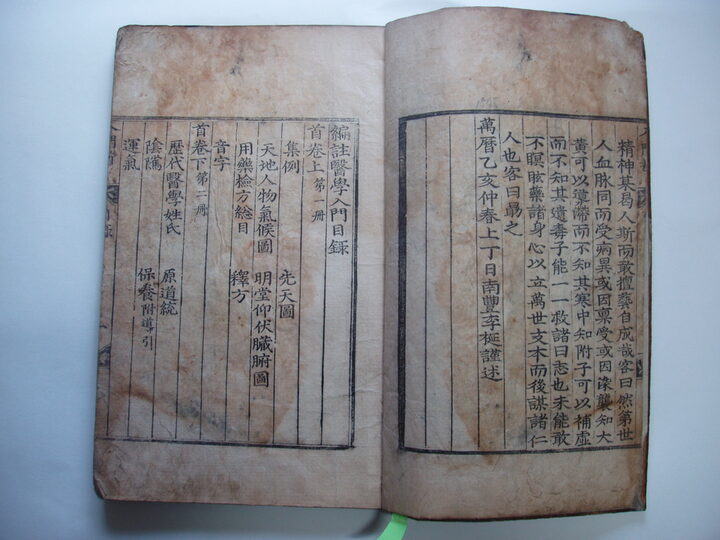 精神某曷人斯而敢擅藝自成哉客曰然第世
人血脉同而受病異或因稟受或因染襲知大
黃可以導滯而不知其寒中知附子可以補虛
而不知其遺毒子能一一救諸曰志也未能敢
不瞑眩藥諸身心以立萬世支本而後謀諸仁
人也客曰勗之
萬曆乙亥仲春上丁日南豐李梴謹述
編註醫學入門目錄
首卷上 第一冊
集例 先天圖
天地人物氣候圖 明堂仰伏臟腑圖
用藥檢方緫目 釋方
音字
首卷下 第二冊
歷代醫學姓氏 原道統
陰騭 保養 附導引
運氣